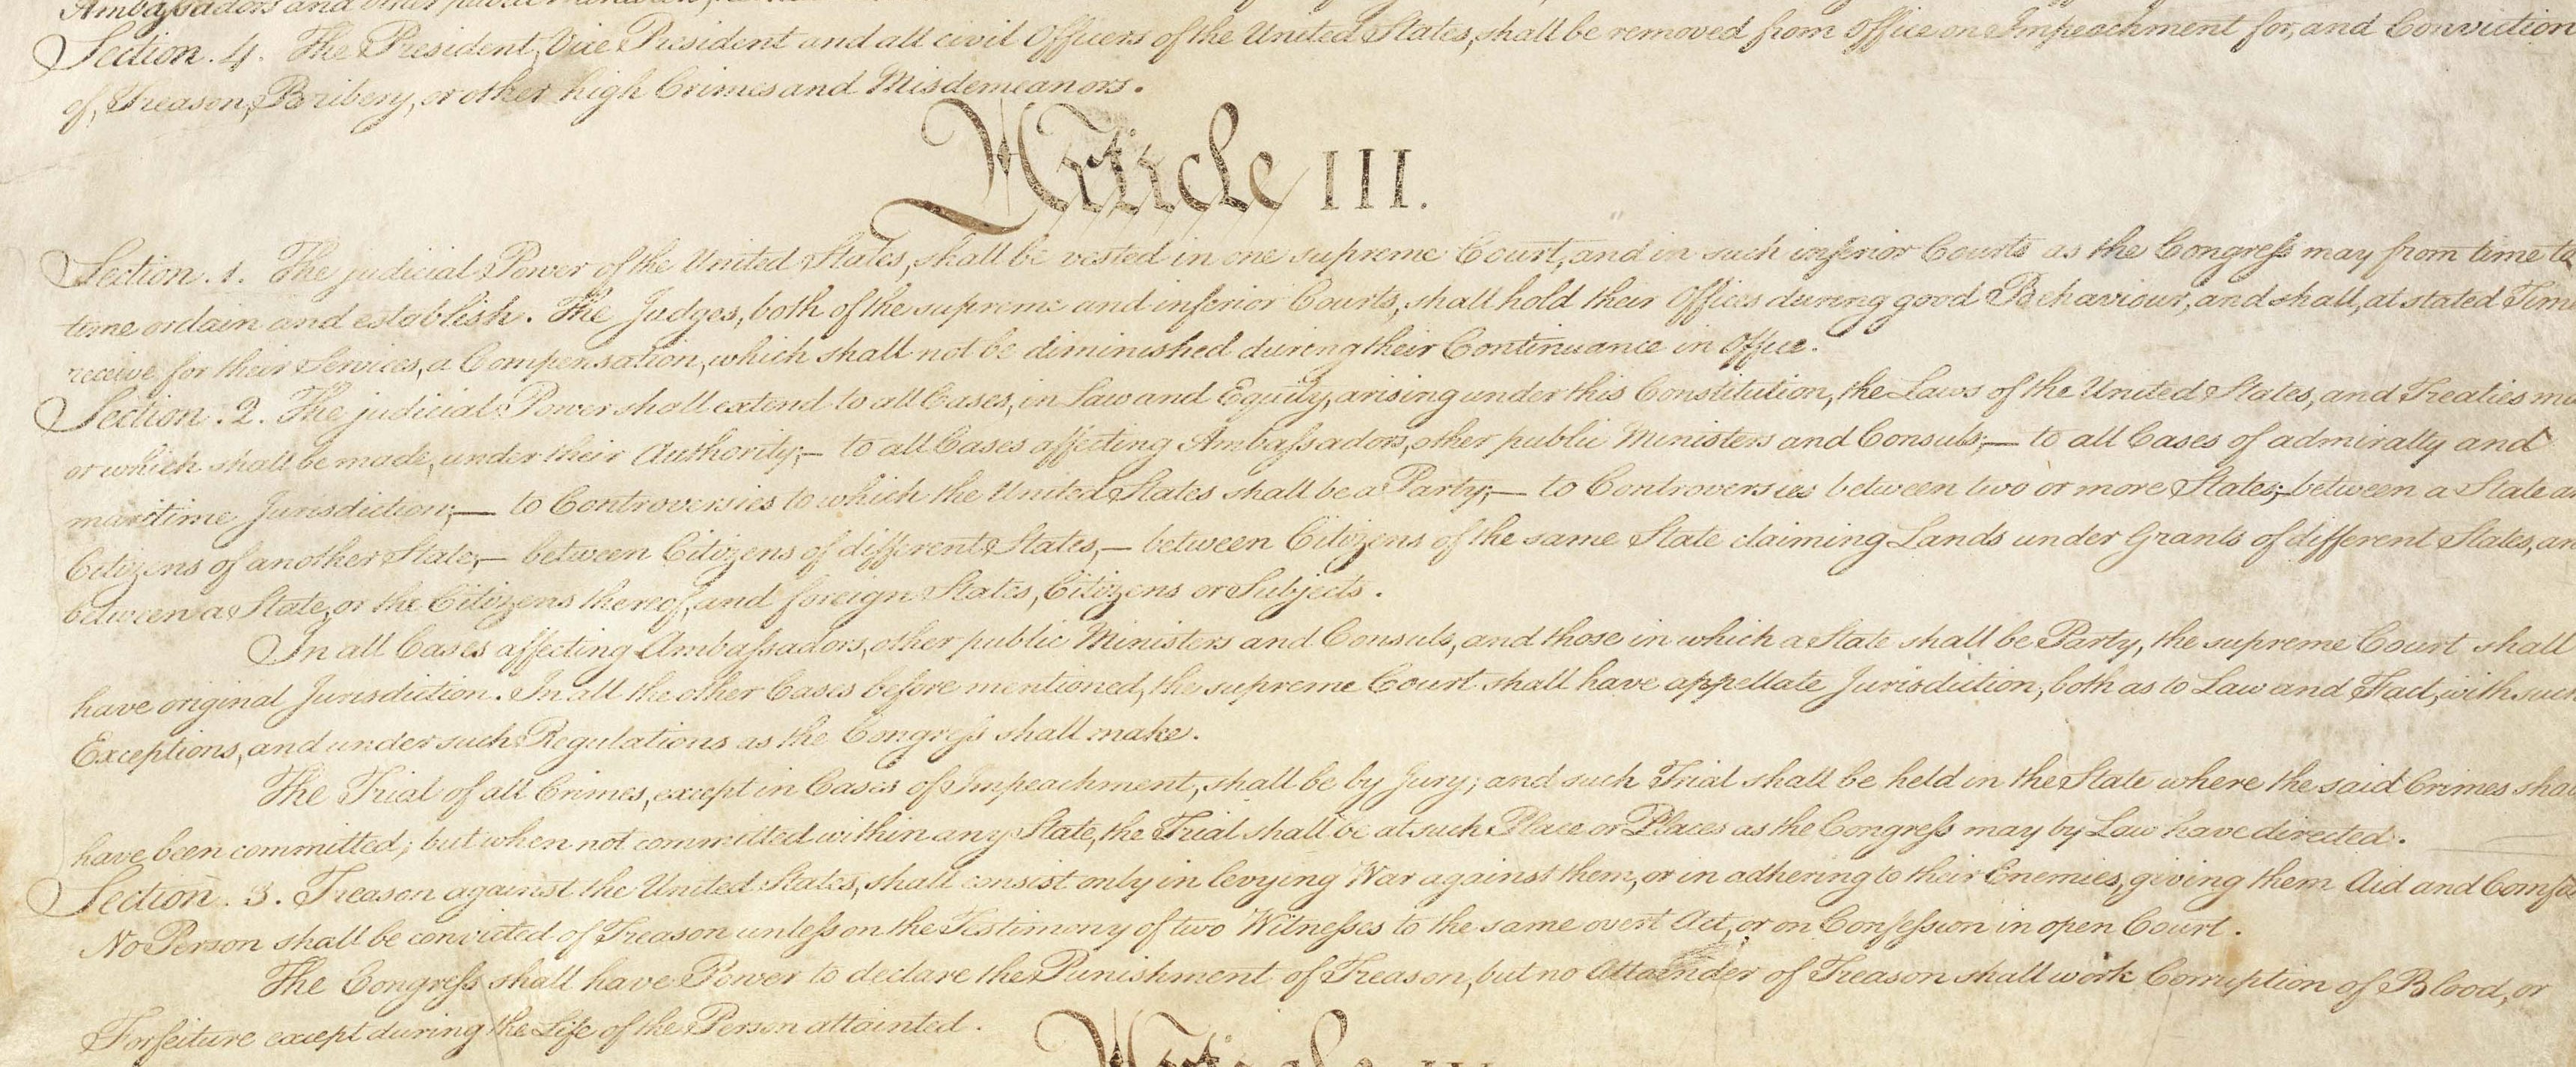 Ambassadors and other public
Section. 4. The President, Vice President and all civil Officers of the United States, shall be removed from Office on Impeachment for, and Conviction
of, Treason, Bribery, or other high Crimes and Misdemeanors.
Article III.
Section. 1. The judicial Power of the United States, shall be vested in one supreme Court, and in such inferior Courts as the Congress may from time to
time ordain and establish. The Judges, both of the supreme and inferior Courts, shall hold their Offices during good Behaviour, and shall, at stated Tim
receive for their Services, a Compensation, which shall not be diminished during their Continuance in Office.
Section. 2. The judicial Power shall extend to all Cases, in Law and Equity, arising under this Constitution, the Laws of the United States, and Treaties ma
or which shall be made, under their Authority;— to all Cases affecting Ambassadors, other public Ministers and Consuls;— to all Cases of admiralty and
maritime Jurisdiction;— to Controversies to which the United States shall be a Party;— to Controversies between two or more States;— between a State an
Citizens of another State,— between Citizens of different States,— between Citizens of the same State claiming Lands under Grants of different States, an
between a State, or the Citizens thereof, and foreign States, Citizens or Subjects.
In all Cases affecting Ambassadors, other public Ministers and Consuls, and those in which a State shall be Party, the supreme Court shall
have original Jurisdiction. In all the other Cases before mentioned, the supreme Court shall have appellate Jurisdiction, both as to Law and Fact, with such
Exceptions, and under such Regulations as the Congress shall make.
The Trial of all Crimes, except in Cases of Impeachment, shall be by Jury; and such Trial shall be held in the State where the said Crimes shal
have been committed; but when not committed within any State, the Trial shall be at such Place or Places as the Congress may by Law have directed.
Section. 3. Treason against the United States, shall consist only in levying War against them, or in adhering to their Enemies, giving them Aid and Comfo
No Person shall be convicted of Treason unless on the Testimony of two Witnesses to the same overt Act, or on Confession in open Court.
The Congress shall have Power to declare the Punishment of Treason, but no Attainder of Treason shall work Corruption of Blood, or
Forfeiture except during the Life of the Person attainted.
Article IV